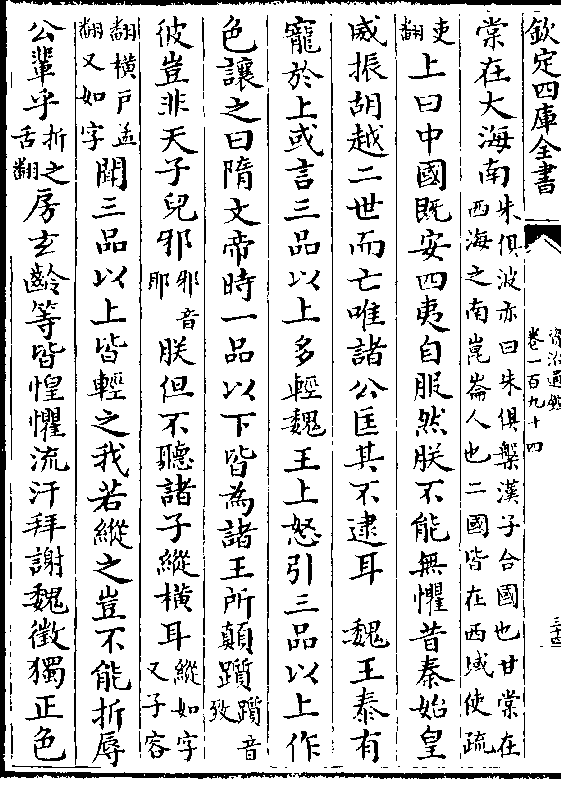 欽定四庫全書
資治通鑑
卷一百九十四
棠在大海南朱俱波亦曰朱俱槃漢子合國也甘棠在西海之南崑崙人也二國皆在西域使疏
吏翻上曰中國既安四夷自服然朕不能無懼昔秦始皇
威振胡越二世而亡唯諸公匡其不逮耳　魏王泰有
寵於上或言三品以上多輕魏王上怒引三品以上作
色讓之曰隋文帝時一品以下皆為諸王所顛躓躓音致
彼豈非天子兒邪邪音耶朕但不聽諸子縱橫耳縱如字又子容
翻橫戶孟翻又如字聞三品以上皆輕之我若縱之豈不能折辱
公輩乎折之舌翻房玄齡等皆惶懼流汗拜謝魏徵獨正色